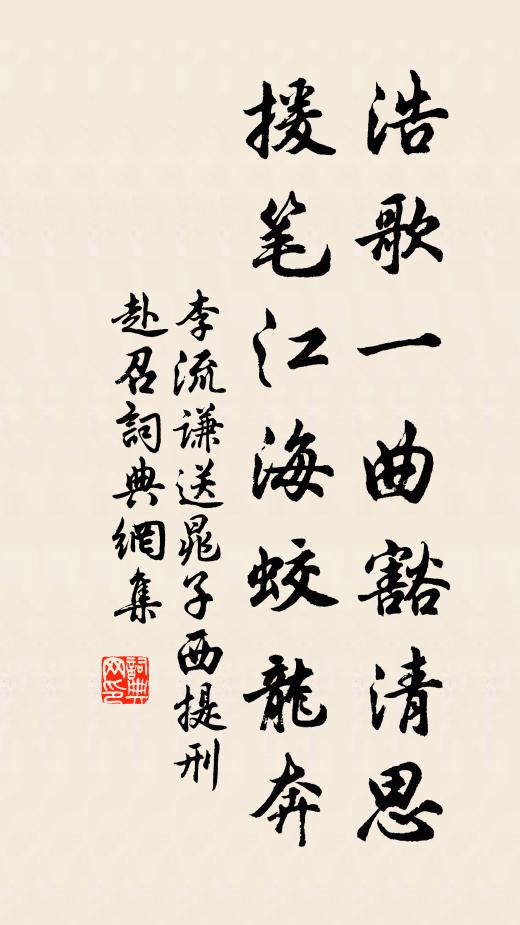 浩歌一曲豁清思
援笔江海蛟龍奔
李流謙送晁子西提刑
赴召詞典網集
詞典网印